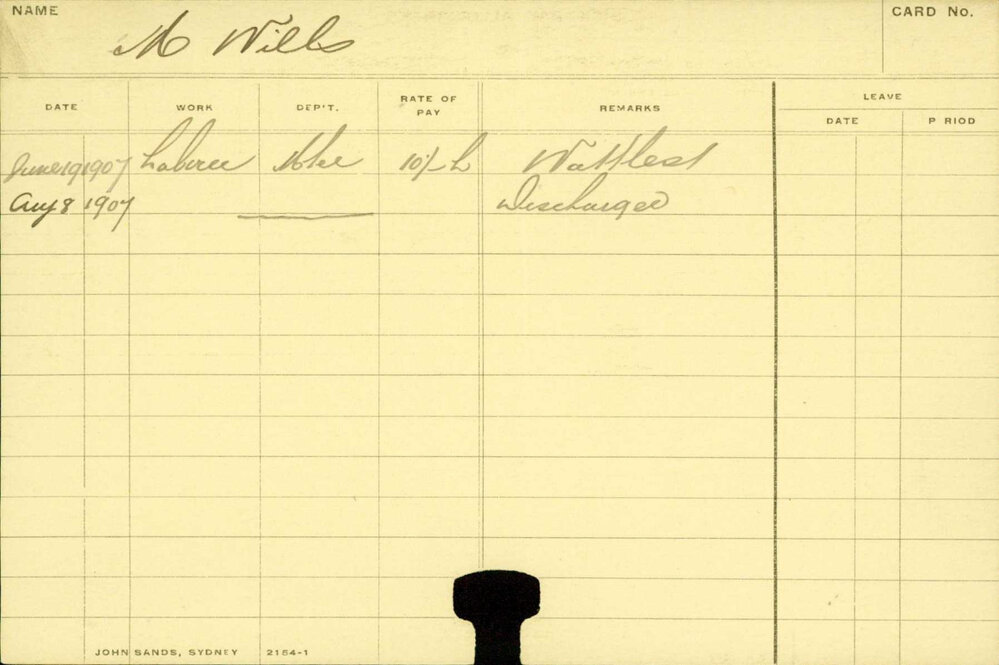 NAME
M Wills
CARD No.
DATE WORK DEP'T. RATE OF PAY REMARKS LEAVE
DATE P RIOD
June 19 1907 Labourer 10/- Wattlest
Aug 8 1907 Discharged
JOHN SANDS, SYDNEY 2154-1